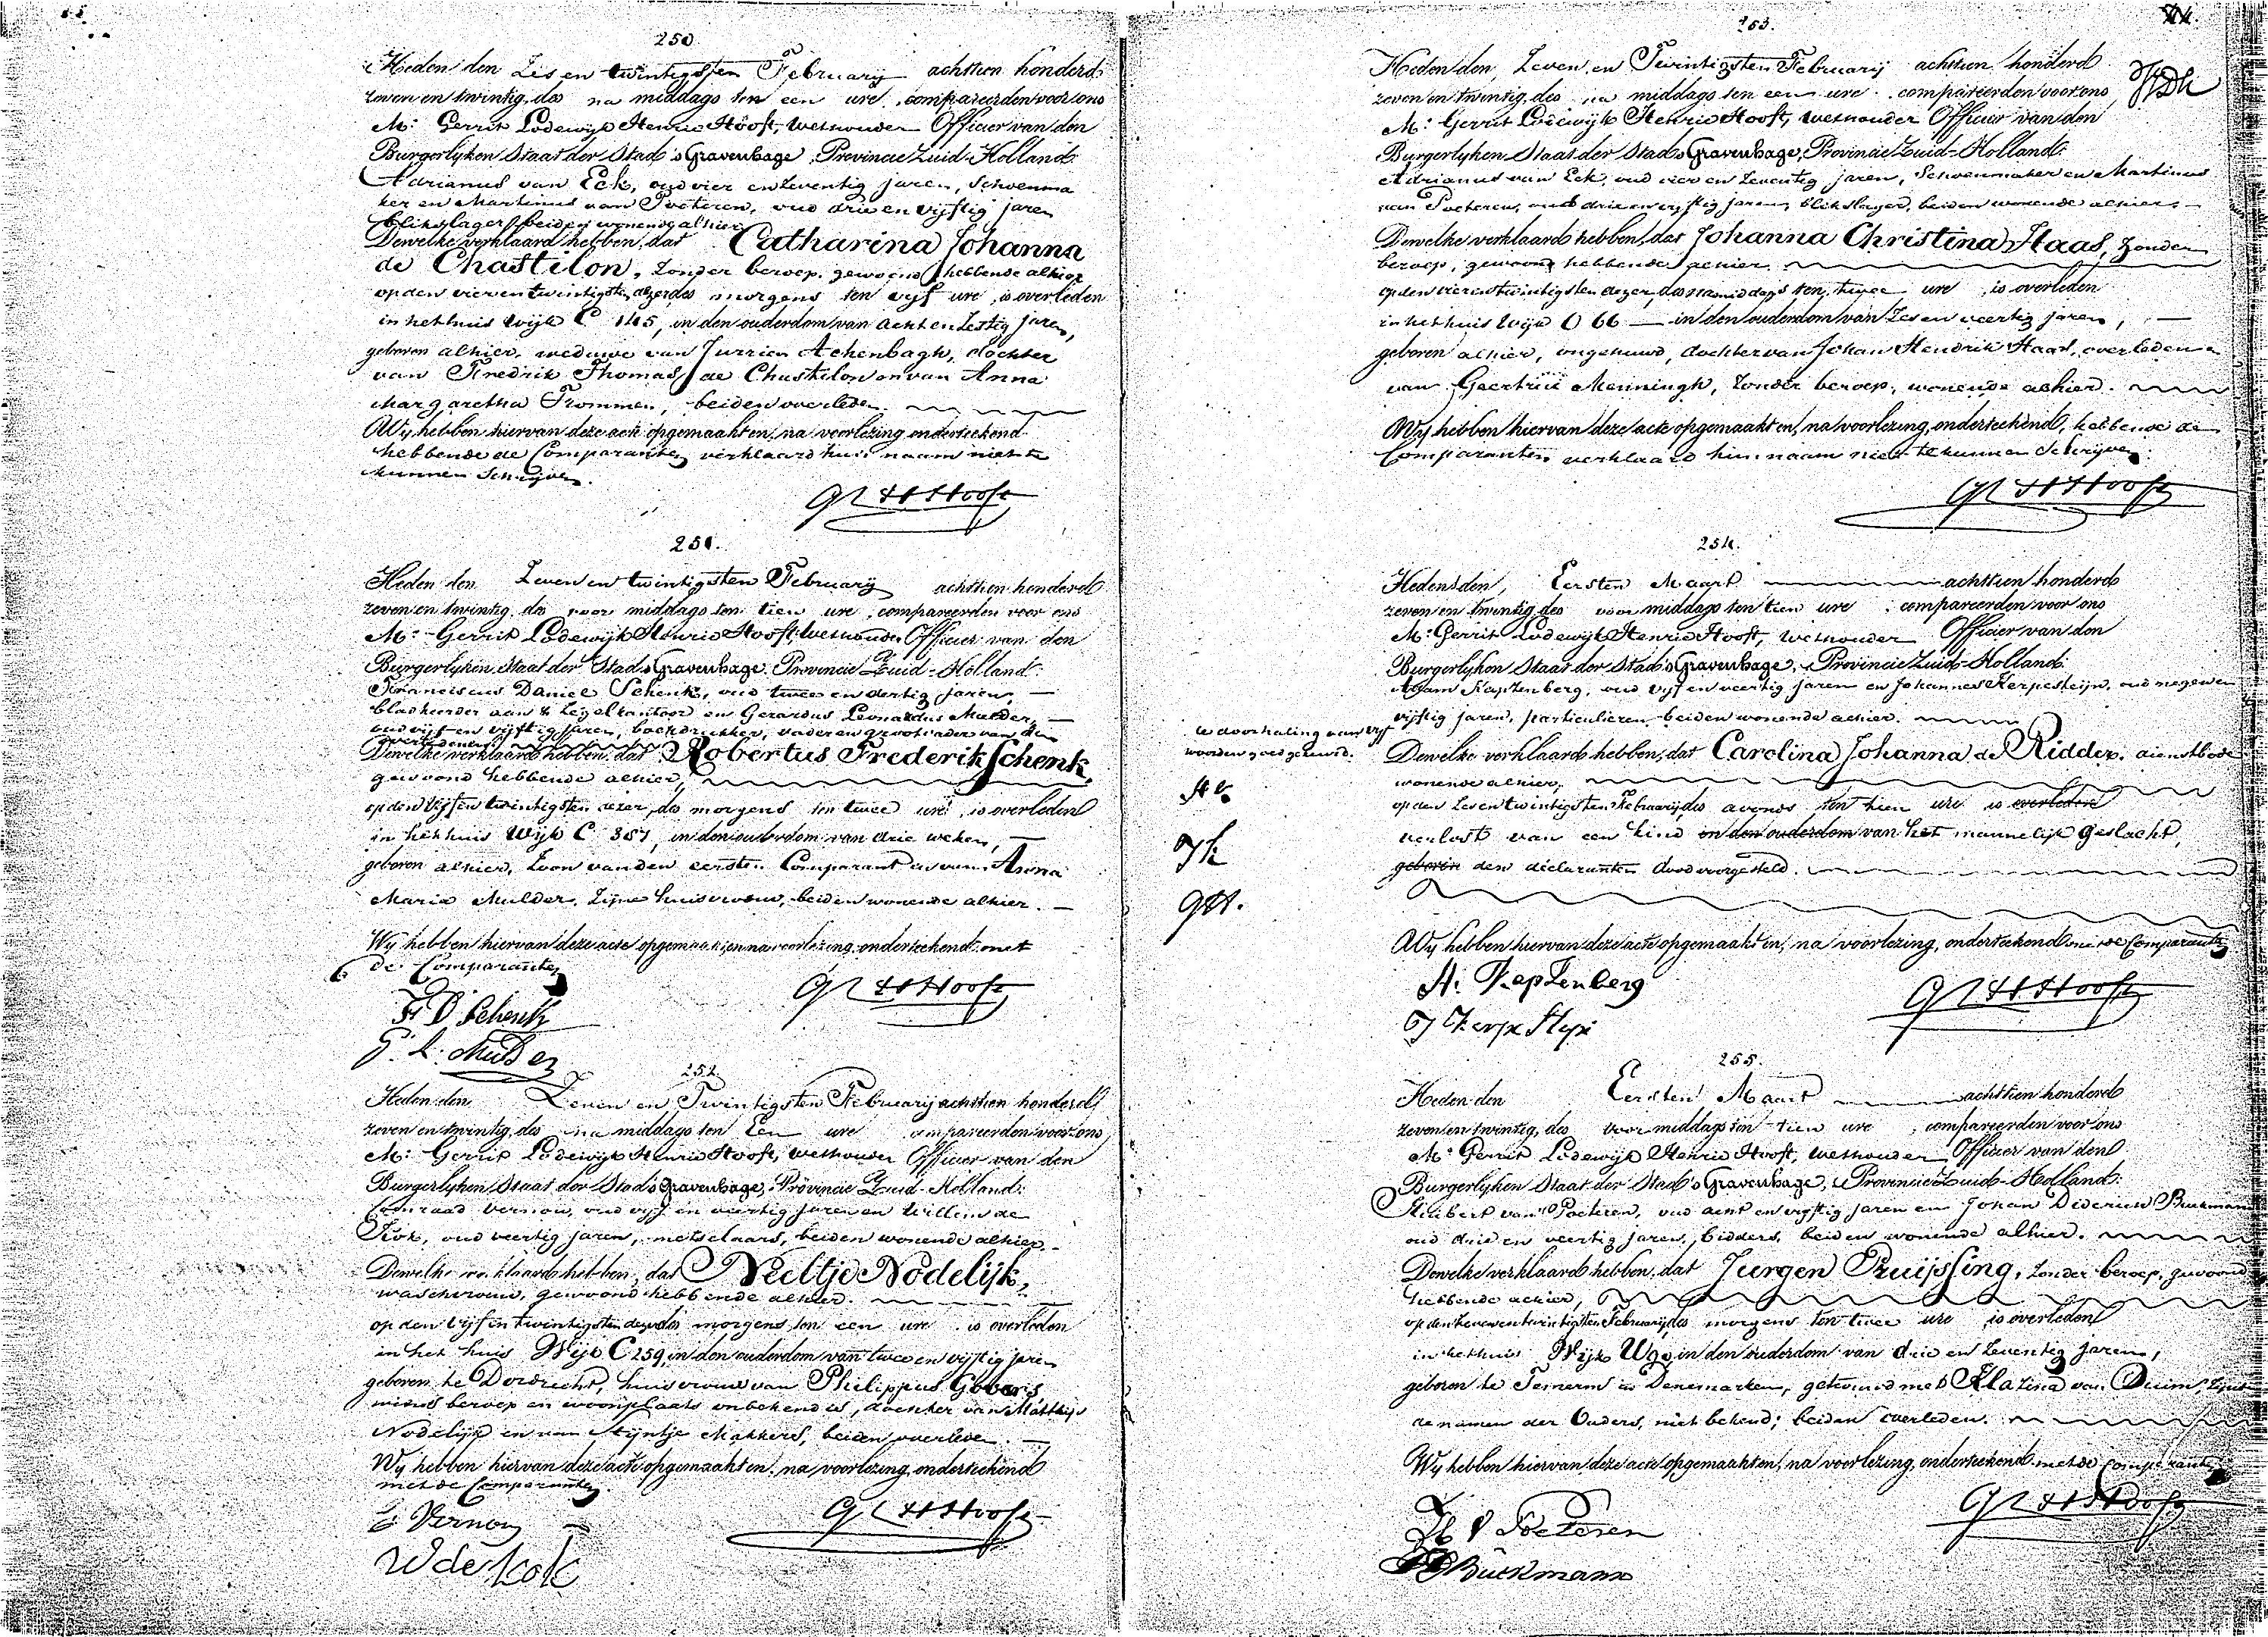 250
Heden den Zes en twintigsten February achttien honderd
zeven en twintig, des na middags ten een ure, compareerden voor ons
Mr. Gerrit Lodewijk Henric Hooft, Wethouder Officier van den
Burgerlyken Staat der Stad 's Gravenhage, Provincie Zuid-Holland:
Adrianus van Eck, oud vier en Zeventig jaren, Schoenma
ker en Martinus van Poeteren, oud drie en vyftig jaren
blikslager, beiden wonende alhier
Dewelke verklaard hebben, dat Catharina Johanna
de Chastilon, Zonder beroep, gewoond hebbende alhier
op den vier en twintigsten dezer des morgens ten vijf ure, is overleden
in het huis Wijk C 145, in den ouderdom van acht en Zestig jaren,
geboren alhier, weduwe van Jurrien Achenbagh, dochter
van Fredrik Thomas de Chastilon en van Anna
Margaretha Frommen, beiden overleden.
Wy hebben hiervan deze acte opgemaakt en, na voorlezing, onderteekend
hebbende de Comparanten verklaard hun naam niet te
kunnen Schrijven.
GLH Hooft
251.
Heden den Zeven en twintigsten February achttien honderd
zeven en twintig, des voor middags ten tien ure, compareerden voor ons
Mr. Gerrit Lodewijk Henric Hooft, Wethouder Officier van den
Burgerlyken Staat der Stad 's Gravenhage, Provincie Zuid-Holland:
Franciscus Daniel Schenk, oud twee en dertig jaren,
bladkeerder aan 't Zegelkantoor en Gerardus Leonardus Mulder,
oud vijf en vijftig jaren, boekdrukker, vader en grootvader van den
overledenen
Dewelke verklaard hebben, dat Robertus Frederik Schenk,
gewoond hebbende alhier,
op den Vijf en twintigsten dezer, des morgens ten twee ure, is overleden
in het huis Wyk C 387, in den ouderdom van drie weken,
geboren alhier, Zoon van den eersten Comparant en van Anna
Maria Mulder, Zijne huisvrouw, beiden wonende alhier.
Wy hebben hiervan deze acte opgemaakt en, na voorlezing, onderteekend met
de Comparanten
F D Schenk
GLH Hooft
G. L. Mulder
252.
Heden den Zeven en Twintigsten February achttien honderd
zeven en twintig, des na middags ten Een ure compareerden voor ons
Mr. Gerrit Lodewijk Henric Hooft, Wethouder Officier van den
Burgerlyken Staat der Stad 's Gravenhage, Provincie Zuid-Holland:
Conraad Vernou, oud vyf en veertig jaren en Willem de
Kok, oud veertig jaren, metselaars, beiden wonende alhier.
Dewelke verklaard hebben, dat Neeltje Nodelijk,
waschvrouw, gewoond hebbende alhier.
op den Vijf en twintigsten dezer des morgens ten een ure is overleden
in het huis Wijk C 259, in den ouderdom van twee en vijftig jaren
geboren te Dordrecht, huisvrouw van Philippus Govers,
wiens beroep en woonplaats onbekend is, dochter van Matthijs
Nodelijk en van Stijntje Makkers, beiden overleden.
Wy hebben hiervan deze acte opgemaakt en, na voorlezing, onderteekend
met de Comparanten.
C Vernou
GLH Hooft
W de Kok
253.
Heden den, Zeven en Twintigsten February achttien honderd
zeven en twintig, des na middags ten een ure compareerden voor ons
Mr. Gerrit Lodewijk Henric Hooft, Wethouder Officier van den
Burgerlyken Staat der Stad 's Gravenhage, Provincie Zuid-Holland:
Adrianus van Eck, oud vier en Zeventig jaren, Schoenmaker en Martinus
van Poeteren, oud drie en vyftig jaren, blikslager, beiden wonende alhier.
Dewelke verklaard hebben, dat Johanna Christina Haas, Zonder
beroep, gewoond hebbende alhier.
op den vier en twintigsten dezer, des namiddags ten twee ure, is overleden
in het huis Wijk O 66 in den ouderdom van Zes en veertig jaren,
geboren alhier, ongehuwd, dochter van Johan Hendrik Haas, overleden en
van Geertrui Menningh, Zonder beroep, wonende alhier.
Wy hebben hiervan deze acte opgemaakt en, na voorlezing, onderteekend, hebbende de
Comparanten verklaard hun naam niet te kunnen Schrijven.
GLH Hooft
254.
Heden den, Eersten Maart achttien honderd
zeven en twintig, des voor middags ten tien ure, compareerden voor ons
Mr. Gerrit Lodewijk Henric Hooft, Wethouder Officier van den
Burgerlyken Staat der Stad 's Gravenhage, Provincie Zuid-Holland:
Adam Kaptenberg, oud vijf en veertig jaren en Johannes Kerpesteijn, oud negen en
vijftig jaren, particulieren, beiden wonende alhier.
de doorhaling van vyf
woorden goedgekeurd.
Dewelke verklaard hebben, dat Carolina Johanna de Ridder, dienstbode
wonende alhier,
op den Zeven twintigsten February des avonds ten tien ure is overleden
verlost van een kind in den ouderdom van het mannelijk geslacht,
geboren den declaranten dood voorgesteld.
Wy hebben hiervan deze acte opgemaakt en, na voorlezing, onderteekend met de Comparanten
A. Keptenberg
GLH Hooft
255.
Heden den Eersten Maart achttien honderd
zeven en twintig, des voor middags ten tien ure, compareerden voor ons
Mr. Gerrit Lodewijk Henric Hooft, Wethouder Officier van den
Burgerlyken Staat der Stad 's Gravenhage, Provincie Zuid-Holland:
Huibert van Poeteren, oud acht en vyftig jaren en Johan Diederich Buckmann
oud drie en veertig jaren, bidders, beiden wonende alhier.
Dewelke verklaard hebben, dat Jurgen Pruijssing, Zonder beroep, gewoond
hebbende alhier,
op den Zeven en twintigsten February des morgens ten twee ure is overleden
in het huis Wijk U 90 in den ouderdom van drie en Zeventig jaren,
geboren te in Denemarken, getrouwd met Klazina van Duim, Zijnde
de namen der Ouders, niet bekend; beiden overleden.
Wy hebben hiervan deze acte opgemaakt en, na voorlezing, onderteekend met de Comparanten
GLH Hooft
H V Poeteren
JD Buckmann